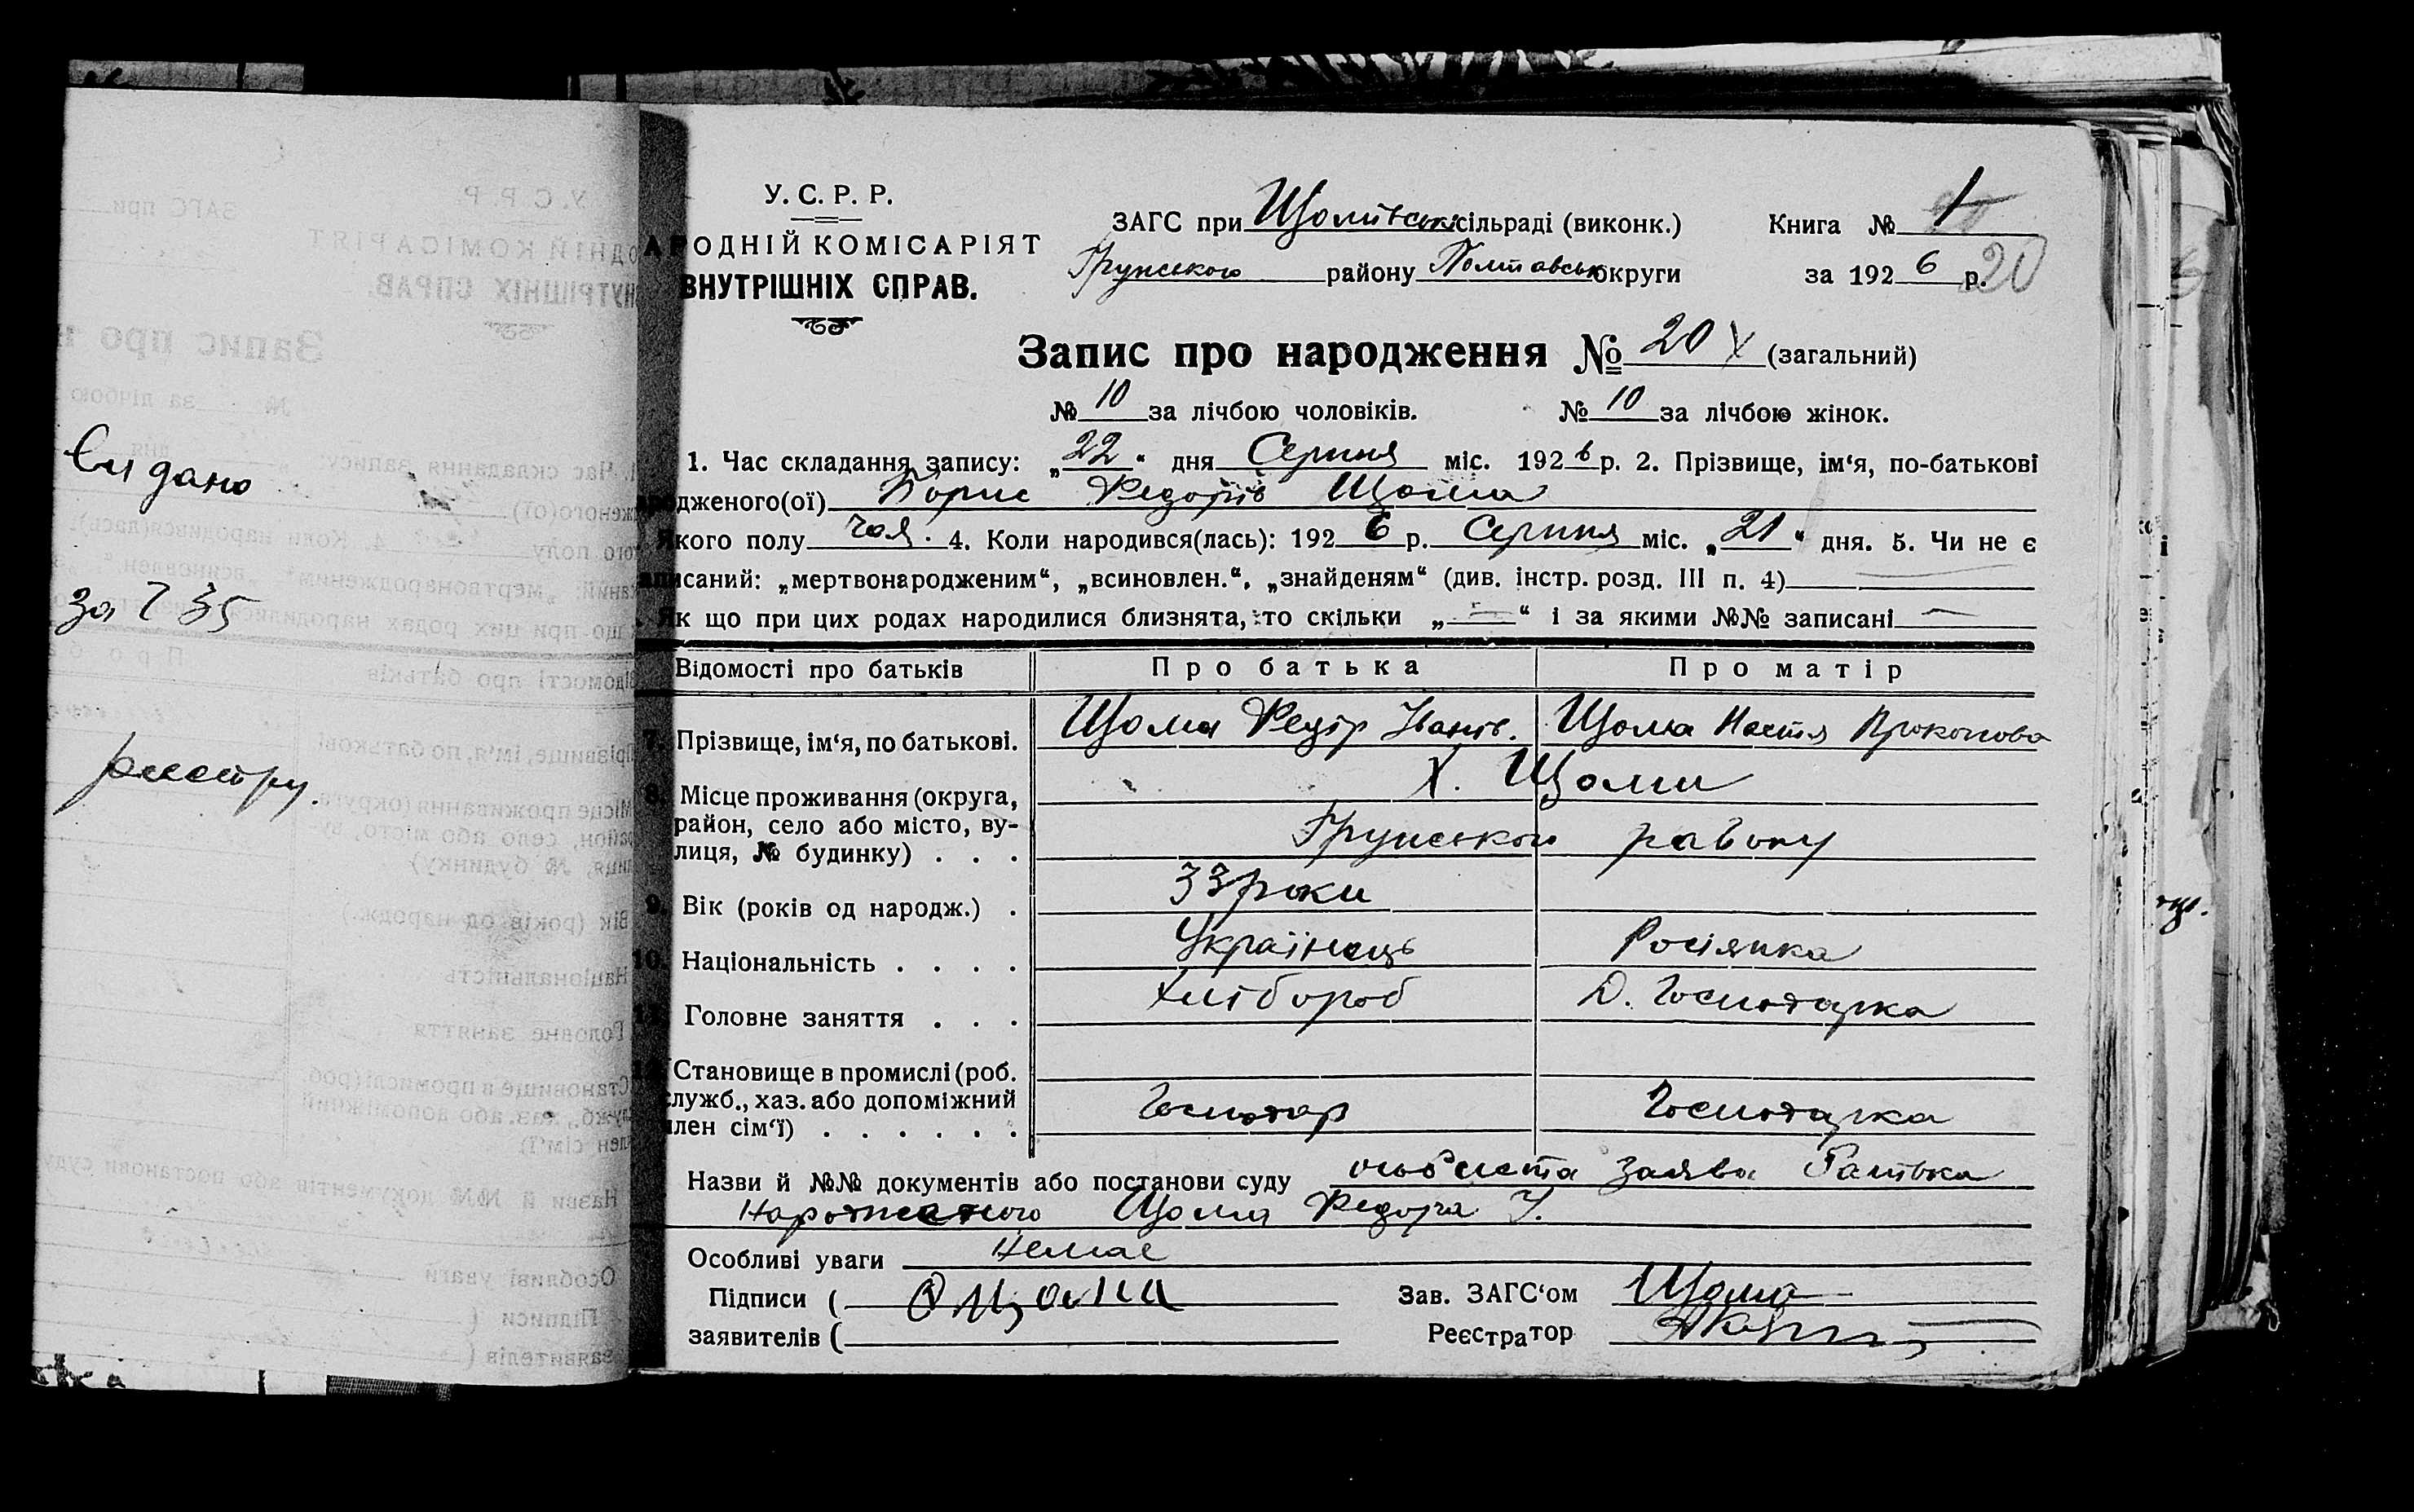 Видано
за № 35
реєстру.
У. С. Р. Р.
АРОДНІЙ КОМІСАРІЯТ
ВНУТРІШНІХ СПРАВ.
ЗАГС при Щомівські сільраді (виконк.) Книга № 1
Грунського району Полтавськ округи за 1926 р. 20
Запис про народження № 20 (загальний)
№ 10 за лічбою чоловіків. № 10 за лічбою жінок.
1. Час складання запису: „22“ дня Серпня міс. 1926 р. 2. Прізвище, ім‘я, по-батькові
родженого(ої) Борис Федорів Щома
Якого полу чол. 4. Коли народився(лась): 1926 р. Серпня міс. „21“ дня. 5. Чи не є
писаний: „мертвонародженим“, „всиновлен.“, „знайденям“ (див. інстр. розд. III п. 4)
Як що при цих родах народилися близнята, то скільки „—“ і за якими №№ записані —
Відомості про батьків Про батька Про матір
7. Прізвище, ім‘я, по батькові. Щома Федір Іванів. Щома Настя Прокопова
8. Місце проживання (округа, Х. Щоми
район, село або місто, ву-
лиця, № будинку) . . . Грунського району
9. Вік (років од народж.) . 33 роки
10. Національність . . . . Українець Росіянка
Головне заняття . . . Хлібороб Д. Господарка
Становище в промислі (роб.
служб., хаз. або допоміжний
член сім‘ї) . . . . . . Господар Господарка
Назви й №№ документів або постанови суду особиста заява Батька
Народженого Щома Федора І.
Особливі уваги Немає
Підписи ( Ф Щома Зав. ЗАГС‘ом Щома
заявителів ( Реєстратор